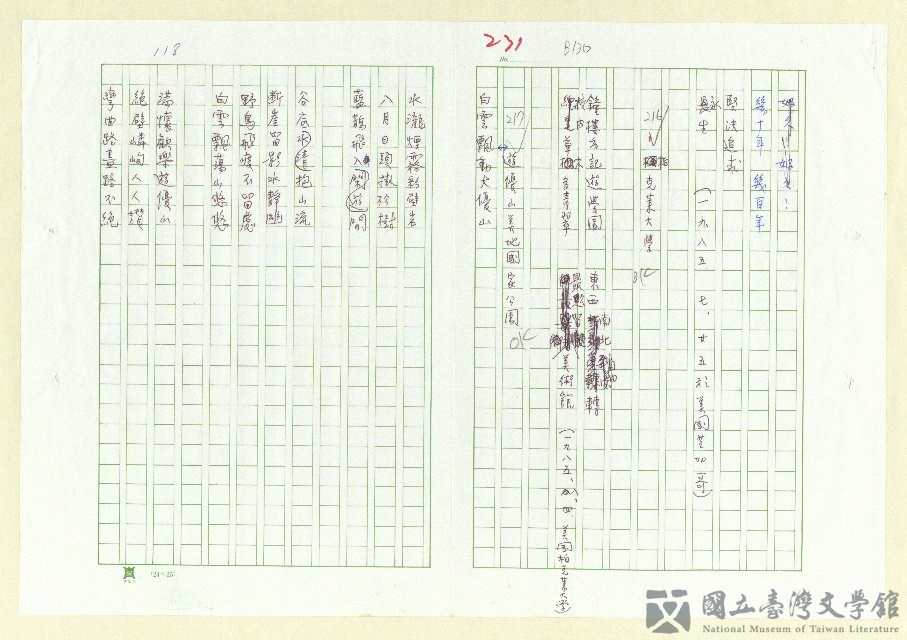 231
B130
No.
幾十年 幾百年
堅決追求
永生
(一九八五 七、廿五於美國芝加哥)
216
柏克萊大學
OK
鐘樓方記遊學園 東西南北轉
校內草樹多青翠 美術館
(一九八五、八、四 美國柏克萊大學)
217
遊優山美地國家公園
OK
白雲飄動大優山
118
水瀧煙霧彩岩
八月日頭掛於樹
藍鵲飛入閒遊間
谷底水隨抱山流
斷崖留影水靜幽
野鳥飛渡不留處
白雲飄蕩山悠悠
滿懷歡樂遊優山
絕壁嶙峋人人讚
彎曲路盡路不絕
(24×25)
國立臺灣文學館
National Museum of Taiwan Literature